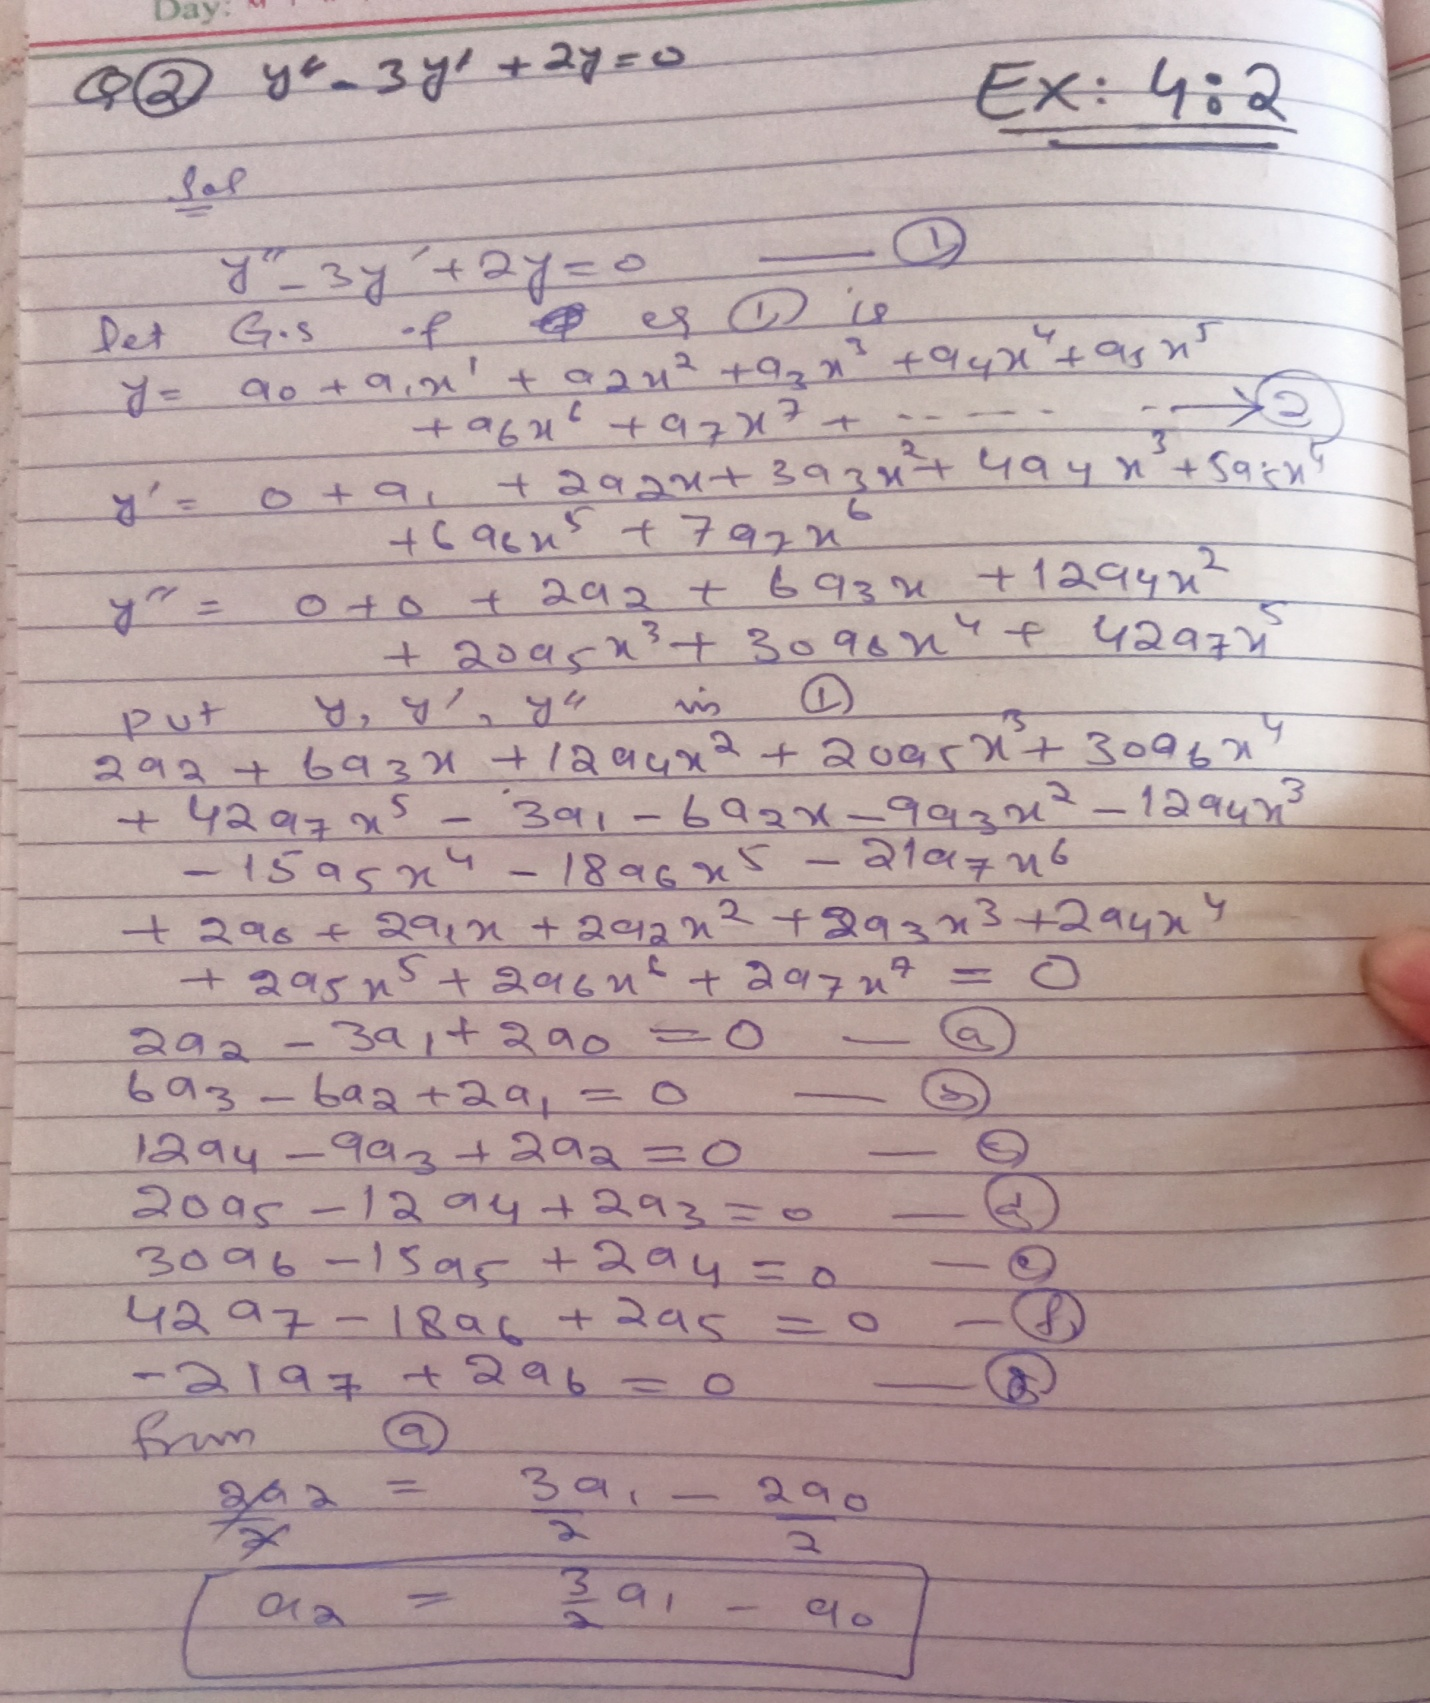 Day: M
Q ② y" - 3y' + 2y = 0
Ex: 4:2
Sol
y" - 3y' + 2y = 0 — ①
let G.s of eq ① is
y = a₀ + a₁x¹ + a₂x² + a₃x³ + a₄x⁴ + a₅x⁵
+ a₆x⁶ + a₇x⁷ + ------- → ②
y' = 0 + a₁ + 2a₂x + 3a₃x² + 4a₄x³ + 5a₅x⁴
+ 6a₆x⁵ + 7a₇x⁶
y" = 0 + 0 + 2a₂ + 6a₃x + 12a₄x²
+ 20a₅x³ + 30a₆x⁴ + 42a₇x⁵
put y, y', y" in ①
2a₂ + 6a₃x + 12a₄x² + 20a₅x³ + 30a₆x⁴
+ 42a₇x⁵ - 3a₁ - 6a₂x - 9a₃x² - 12a₄x³
- 15a₅x⁴ - 18a₆x⁵ - 21a₇x⁶
+ 2a₀ + 2a₁x + 2a₂x² + 2a₃x³ + 2a₄x⁴
+ 2a₅x⁵ + 2a₆x⁶ + 2a₇x⁷ = 0
2a₂ - 3a₁ + 2a₀ = 0 — ⓐ
6a₃ - 6a₂ + 2a₁ = 0 — ⓑ
12a₄ - 9a₃ + 2a₂ = 0 — ⓒ
20a₅ - 12a₄ + 2a₃ = 0 — ⓓ
30a₆ - 15a₅ + 2a₄ = 0 — ⓔ
42a₇ - 18a₆ + 2a₅ = 0 — ⓕ
-21a₇ + 2a₆ = 0 — ⓖ
from ⓐ
2a₂/2 = 3a₁/2 - 2a₀/2
a₂ = 3/2 a₁ - a₀